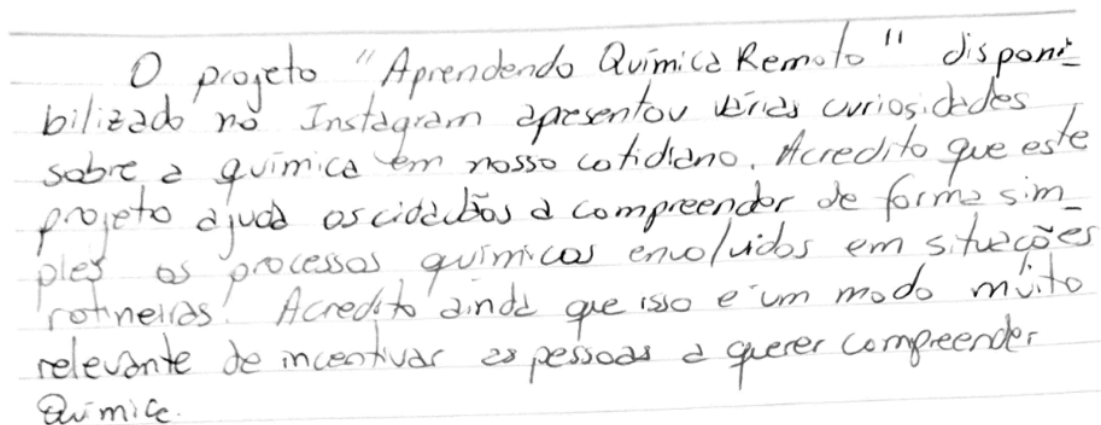 O projeto "Aprendendo Química Remoto" disponi-
bilizado no Instagram apresentou várias curiosidades
sobre a química em nosso cotidiano. Acredito que este
projeto ajuda os cidadãos a compreender de forma sim-
ples os processos químicos envolvidos em situações
rotineiras. Acredito ainda que isso é um modo muito
relevante de incentivar as pessoas a querer compreender
Química.